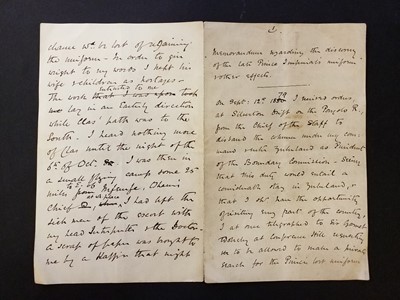 chance wd be lost of regaining
the uniform - In order to give
weight to my words I kept his
wife & children as hostages -
entrusted to me
The work that I was upon took
me lay in an Easterly direction
while Clas' path was to the
South. I heard nothing more
of Clas until the night of the
6th of Oct. I was then in
a small flying camp some 25
miles to E. of
from Chief
at a place
I had left the
sick men of the escort with
my head Interpreter & the Doctor -
A scrap of paper was brought to
me by a Kaffir that night
2.
Memorandum regarding the discovery
of the late Prince Imperial's uniform
& other effects.
On Sept: 12th 1879 I received orders,
at Silverton Drift on the Pongolo R.,
from the Chief of the Staff to
disband the column under my com-
mand & enter Zululand as President
of the Boundary Commission. Seeing
that this duty would entail a
considerable stay in Zululand, &
that I shd have the opportunity
of visiting many parts of the country,
I at once telegraphed to Sir Garnet
Wolseley at Conference Hill requesting
him to be allowed to make a private
search for the Prince's lost uniform